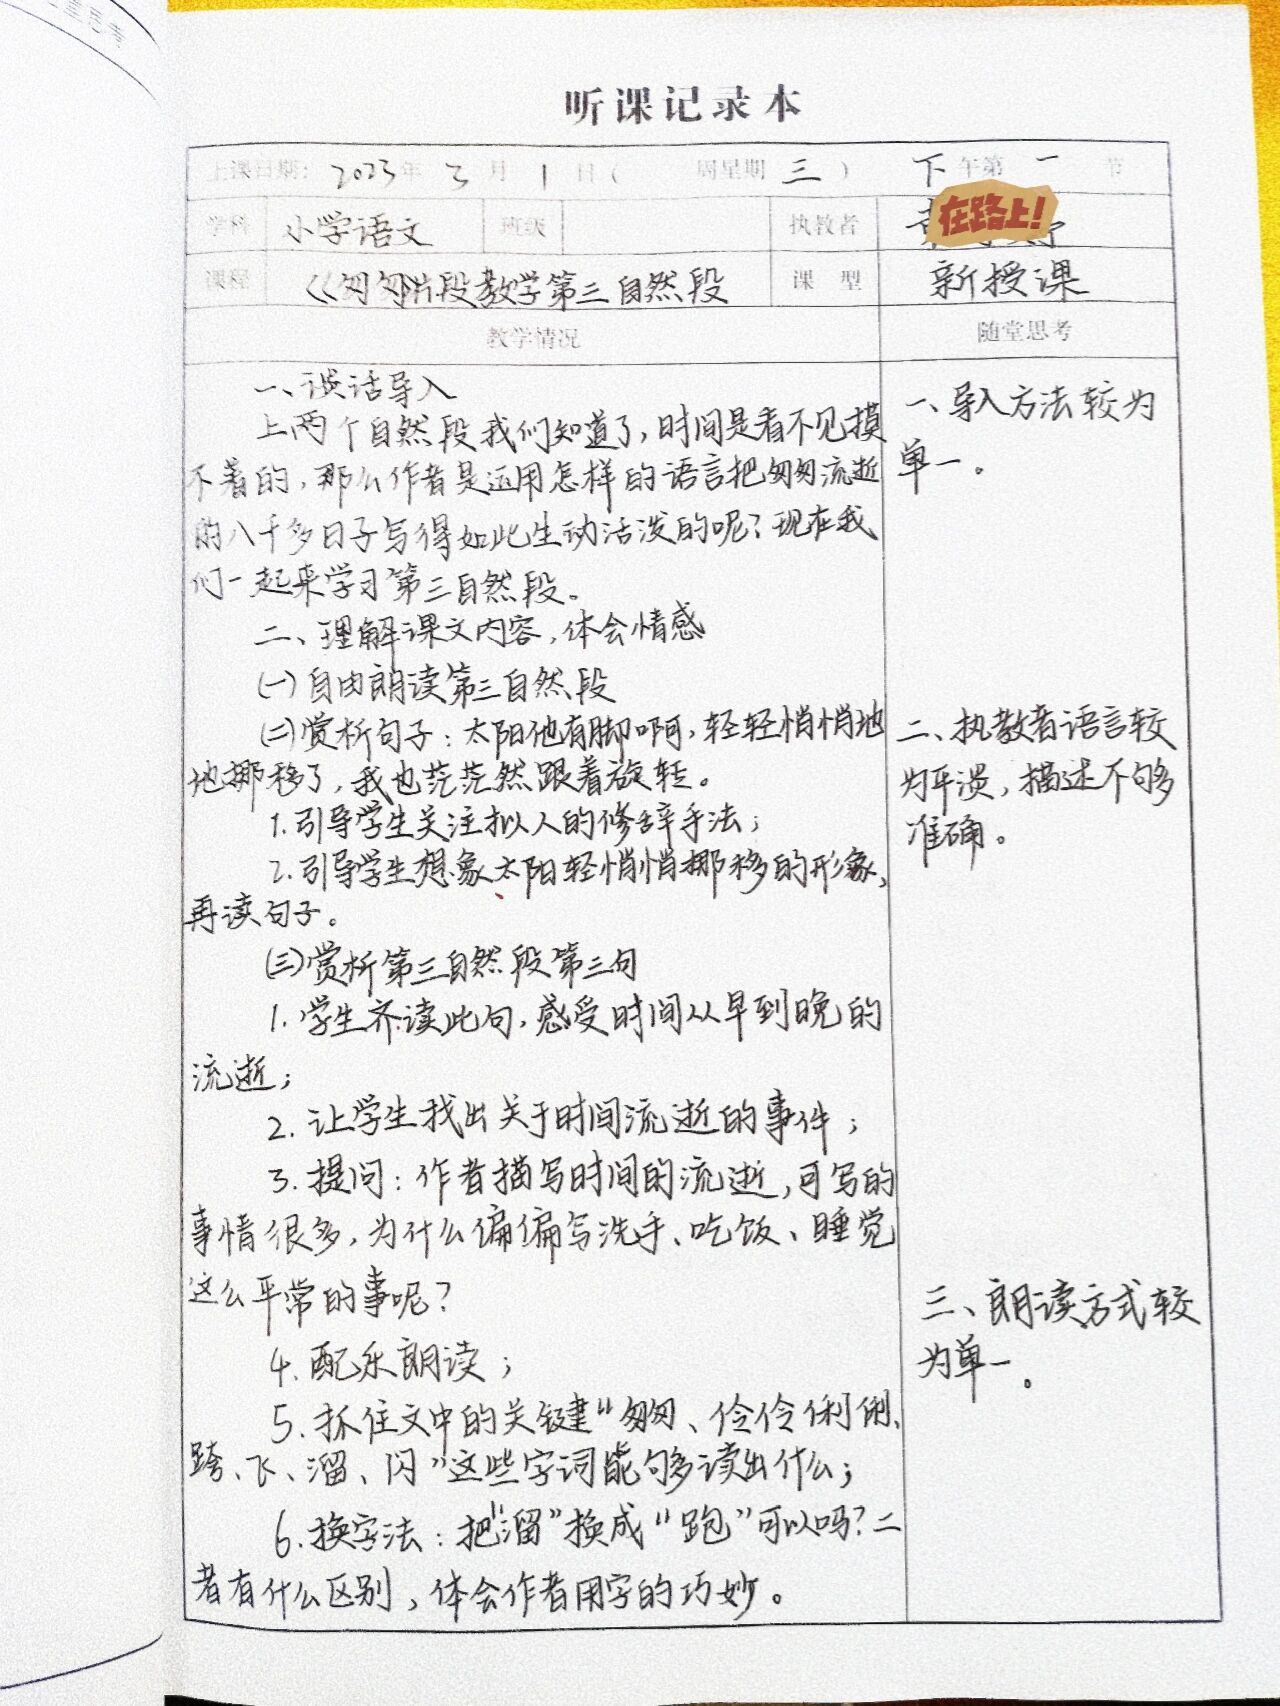 听课记录本
上课日期: 2023年 3月 1日( 周星期 三 ) 下午第 一 节
学科 小学语文 班级 执教者
在路上!
课程 《匆匆片段教学第三自然段 课 型 新授课
教学情况 随堂思考
一、谈话导入
上两个自然段我们知道了,时间是看不见摸
不着的,那么作者是运用怎样的语言把匆匆流逝
的八千多日子写得如此生动活泼的呢?现在我
们一起来学习第三自然段。
二、理解课文内容,体会情感
(一)自由朗读第三自然段
(二)赏析句子:太阳他有脚啊,轻轻悄悄地
地挪移了,我也茫茫然跟着旋转。
1.引导学生关注拟人的修辞手法;
2.引导学生想象太阳轻悄悄挪移的形象,
再读句子。
(三)赏析第三自然段第三句
1.学生齐读此句,感受时间从早到晚的
流逝;
2.让学生找出关于时间流逝的事件;
3.提问:作者描写时间的流逝,可写的
事情很多,为什么偏偏写洗手、吃饭、睡觉
这么平常的事呢?
4.配乐朗读;
5.抓住文中的关键"匆匆、伶伶俐俐、
跨、飞、溜、闪"这些字词能够读出什么;
6.换字法:把"溜"换成"跑"可以吗?二
者有什么区别,体会作者用字的巧妙。
一、导入方法较为
单一。
二、执教者语言较
为平淡,描述不够
准确。
三、朗读方式较
为单一。